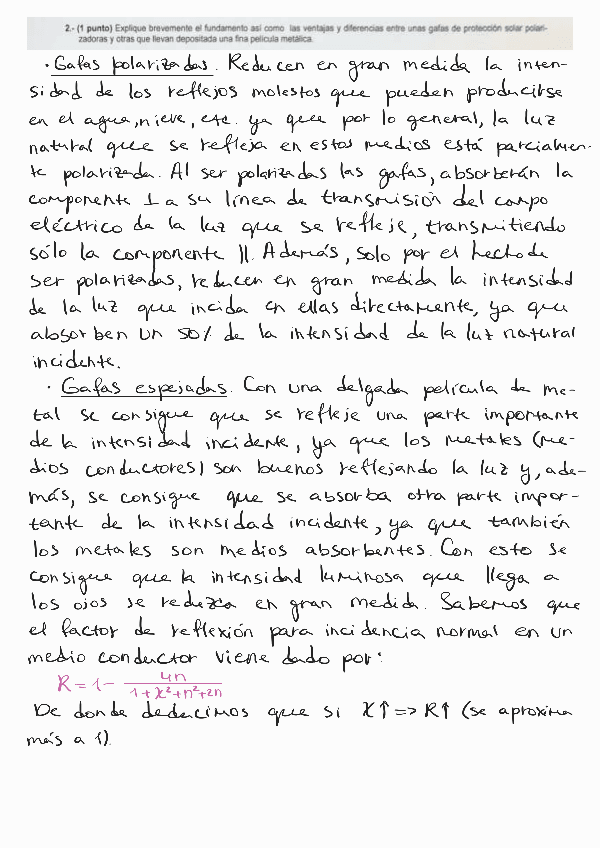 2.- (1 punto) Explique brevemente el fundamento así como las ventajas y diferencias entre unas gafas de protección solar polari-
zadoras y otras que llevan depositada una fina película metálica.
· Gafas polarizadas. Reducen en gran medida la inten-
sidad de los reflejos molestos que pueden producirse
en el agua, nieve, etc. ya que por lo general, la luz
natural que se refleja en estos medios está parcialmen-
te polarizada. Al ser polarizadas las gafas, absorberán la
componente ⊥ a su línea de transmisión del campo
eléctrico de la luz que se refleje, transmitiendo
sólo la componente ||. Además, solo por el hecho de
ser polarizadas, reducen en gran medida la intensidad
de la luz que incida en ellas directamente, ya que
absorben un 50% de la intensidad de la luz natural
incidente.
· Gafas espejadas. Con una delgada película de me-
tal se consigue que se refleje una parte importante
de la intensidad incidente, ya que los metales (me-
dios conductores) son buenos reflejando la luz y, ade-
más, se consigue que se absorba otra parte impor-
tante de la intensidad incidente, ya que también
los metales son medios absorbentes. Con esto se
consigue que la intensidad luminosa que llega a
los ojos se reduzca en gran medida. Sabemos que
el factor de reflexión para incidencia normal en un
medio conductor viene dado por:
R = 1 - 4n / (1 + χ² + n² + 2n)
De donde deducimos que si χ↑ => R↑ (se aproxima
más a 1).